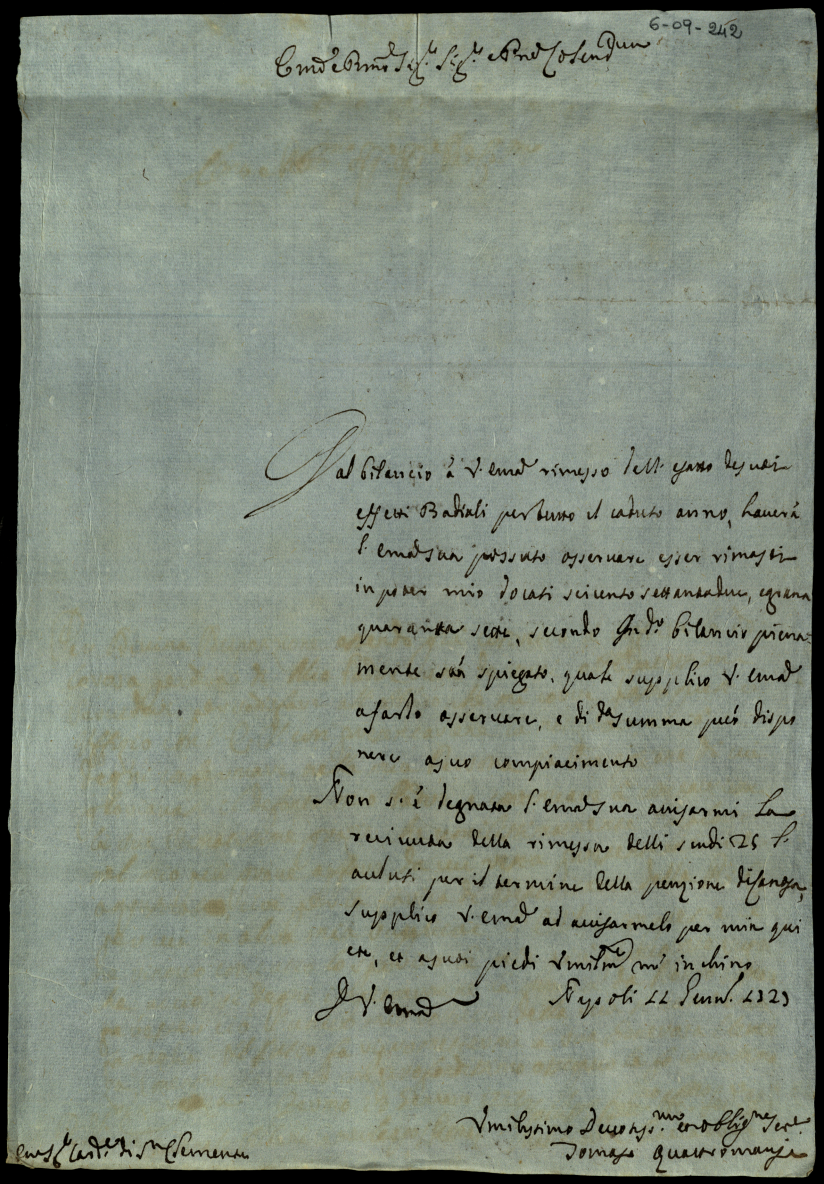 6-09-242
Em.º e Rmo Sig.r Sig.r e Pne Colend.mo
Dal bilancio á V. Emã rimesso dell' esatto de suoi
effetti Badiali per tutto il caduto anno, haverá
l' Emã sua possuto osservare esser rimasti
in poter mio docati seicento settantadue, e grana
quaranta sette, secondo d.º bilancio piena-
mente stá spiegato, quale supplico V. Emã
a farlo osservare, e di dª summa puó dispo
nere a suo compiacimento
Non s' é degnata l' Emã sua avisarmi la
ricevuta della rimessa delli scudi 25
per il termine della penzione di
supplico V. Emã ad avisarmelo per mia qui
ete, et a suoi piedi umilm.te m' inchino
D V. Emã Napoli 22
Umilissimo Devotiss.mo et oblig.mo Ser.e
Tomaso Quattromani
Em. Sig.r Card.e di S. Clemente